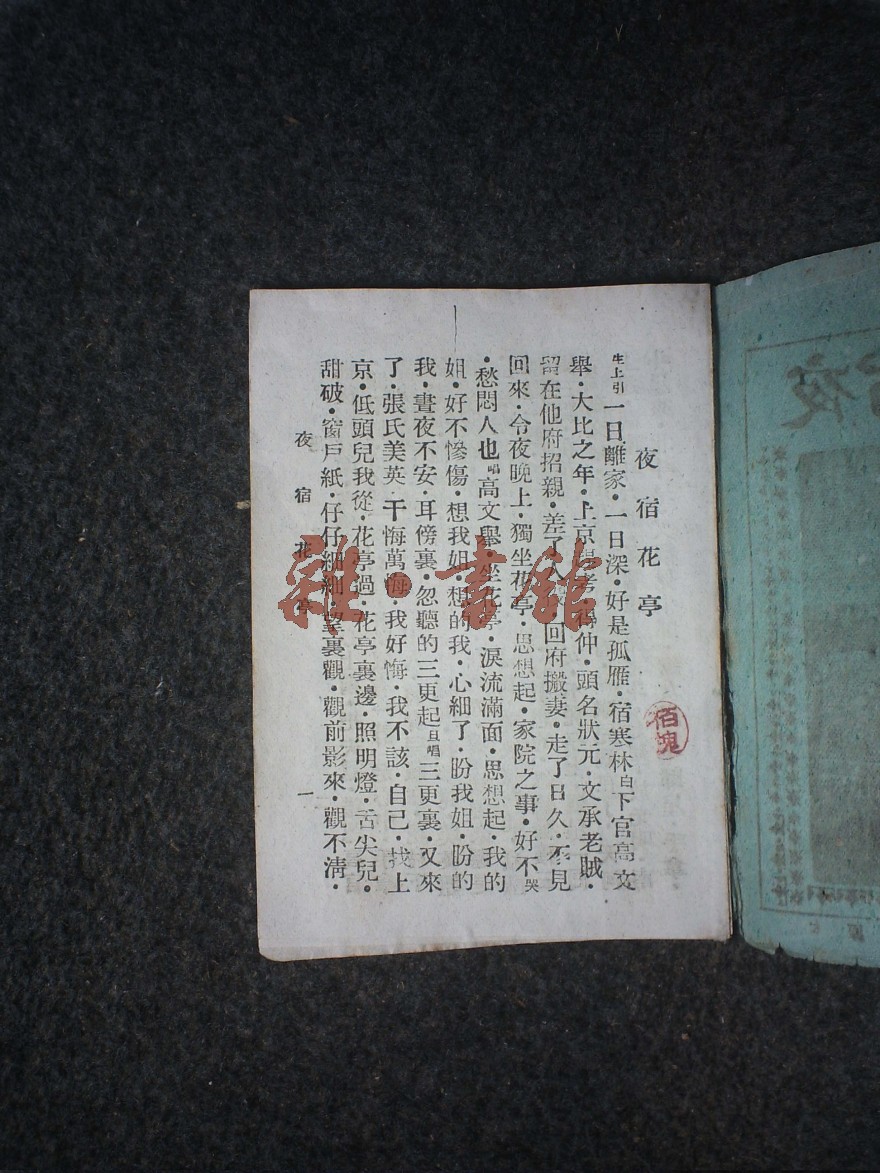 夜宿花亭
生上引一日離家·一日深·好是孤雁·宿寒林白下官高文
舉·大比之年·上京考·仲·頭名狀元·文承老賊·
留在他府招親·差了人·回府搬妻·走了日久·不見
回來·今夜晚上·獨坐花亭·思想起·家院之事·好不哭
·愁悶人也唱高文舉·坐花亭·淚流滿面·思想起·我的
姐·好不慘傷·想我姐·想的我·心細了·盼我姐·盼的
我·晝夜不安·耳傍裏·忽聽的三更起旦唱三更裏·又來
了·張氏美英·干悔萬悔·我好悔·我不該·自己·找上
京·低頭兒我從·花亭過·花亭裏邊·照明燈·舌尖兒·
甜破·窗戶紙·仔仔細細·望裏觀·觀前影來·觀不清·
夜宿花亭 一
雜·書館
夜宿